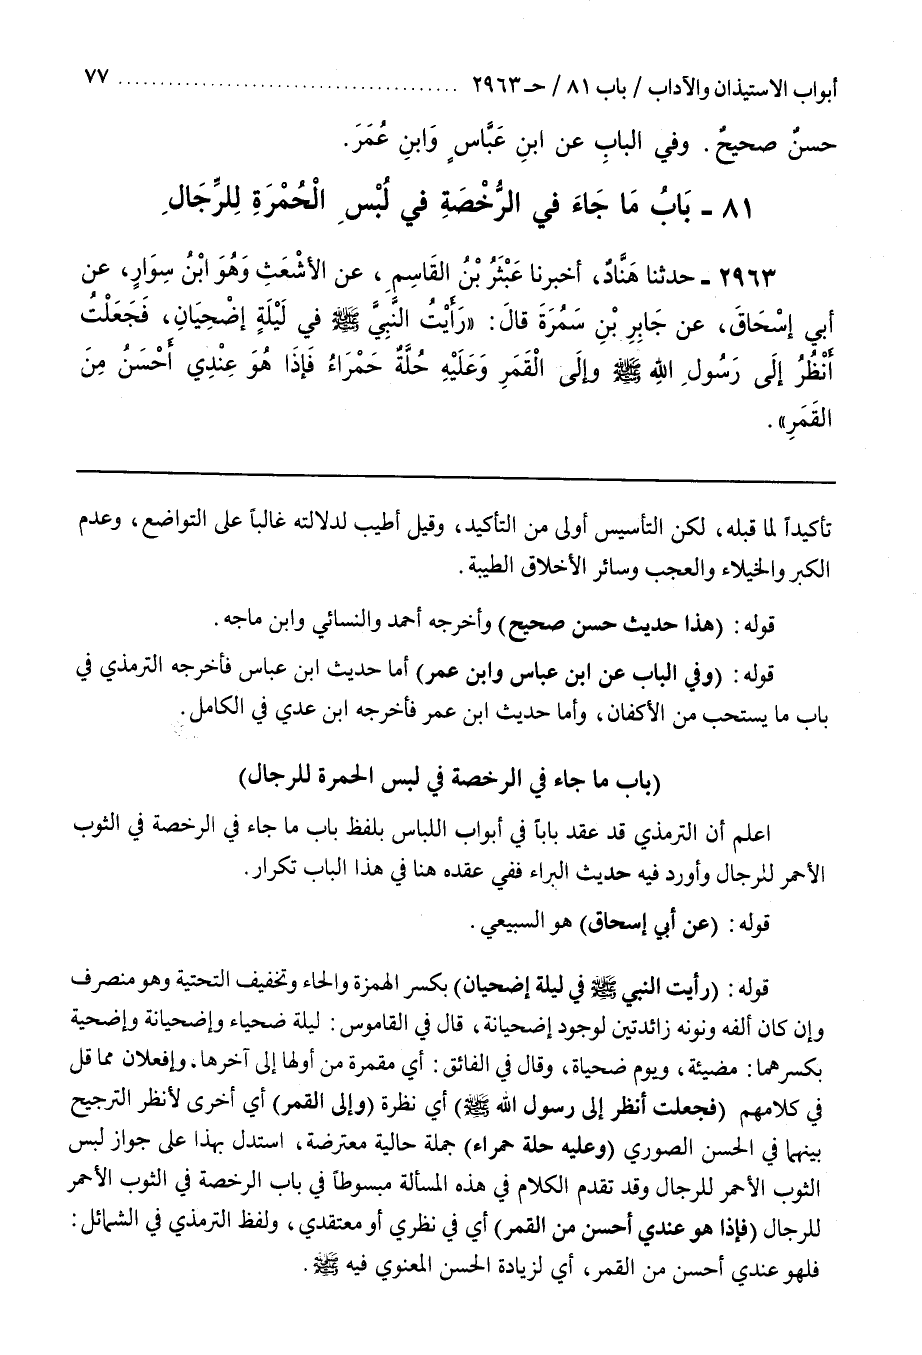 أبواب الاستيذان والآداب / باب ٨١ / حـ ٢٩٦٣ ........................................ ٧٧
حسنٌ صحيحٌ. وفي البابِ عن ابنِ عَبَّاسٍ وَابنِ عُمَرَ.
٨١ ـ بَابُ مَا جَاءَ في الرُّخْصَةِ في لُبْسِ الْحُمْرَةِ لِلرِّجَالِ
٢٩٦٣ ـ حدثنا هَنَّادٌ، أخبرنا عَبْثَرُ بْنُ القَاسِمِ، عن الأشْعَثِ وَهُوَ ابْنُ سِوَارٍ، عن
أبي إسْحَاقَ، عن جَابِرِ بْنِ سَمُرَةَ قالَ: «رَأَيْتُ النَّبِيَّ ﷺ في لَيْلَةٍ إضْحِيَانِ، فَجَعَلْتُ
أَنْظُرُ إلَى رَسُولِ اللهِ ﷺ وإلَى الْقَمَرِ وَعَلَيْهِ حُلَّةٌ حَمْرَاءُ فَإذَا هُوَ عِنْدِي أَحْسَنُ مِنَ
القَمَرِ».
تأكيداً لما قبله، لكن التأسيس أولى من التأكيد، وقيل أطيب لدلالته غالباً على التواضع، وعدم
الكبر والخيلاء والعجب وسائر الأخلاق الطيبة.
قوله: (هذا حديث حسن صحيح) وأخرجه أحمد والنسائي وابن ماجه.
قوله: (وفي الباب عن ابن عباس وابن عمر) أما حديث ابن عباس فأخرجه الترمذي في
باب ما يستحب من الأكفان، وأما حديث ابن عمر فأخرجه ابن عدي في الكامل.
(باب ما جاء في الرخصة في لبس الحمرة للرجال)
اعلم أن الترمذي قد عقد باباً في أبواب اللباس بلفظ باب ما جاء في الرخصة في الثوب
الأحمر للرجال وأورد فيه حديث البراء ففي عقده هنا في هذا الباب تكرار.
قوله: (عن أبي إسحاق) هو السبيعي.
قوله: (رأيت النبي ﷺ في ليلة إضحيان) بكسر الهمزة والحاء وتخفيف التحتية وهو منصرف
وإن كان ألفه ونونه زائدتين لوجود إضحيانة، قال في القاموس: ليلة ضحياء وإضحيانة وإضحية
بكسرهما: مضيئة، ويوم ضحياة، وقال في الفائق: أي مقمرة من أولها إلى آخرها. وإفعلان مما قل
في كلامهم (فجعلت أنظر إلى رسول الله ﷺ) أي نظرة (وإلى القمر) أي أخرى لأنظر الترجيح
بينهما في الحسن الصوري (وعليه حلة حمراء) جملة حالية معترضة، استدل بهذا على جواز لبس
الثوب الأحمر للرجال وقد تقدم الكلام في هذه المسألة مبسوطاً في باب الرخصة في الثوب الأحمر
للرجال (فإذا هو عندي أحسن من القمر) أي في نظري أو معتقدي، ولفظ الترمذي في الشمائل:
فلهو عندي أحسن من القمر، أي لزيادة الحسن المعنوي فيه ﷺ.